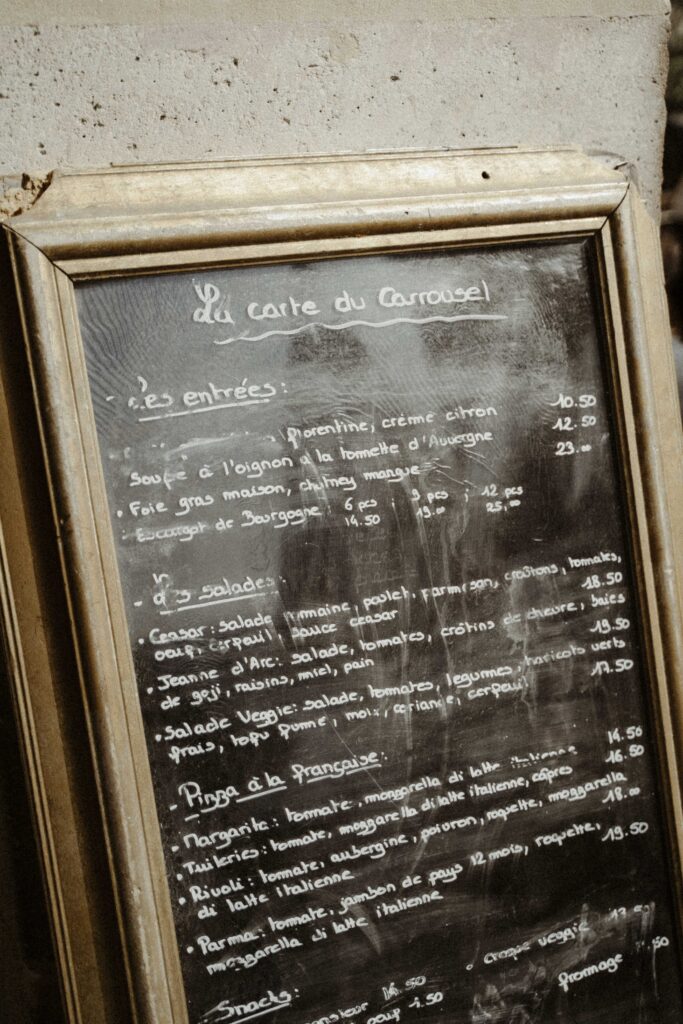 La carte du Carrousel
- Les entrées :
florentine, crème citron 10.50
Soupe à l'oignon à la tommette d'Auvergne 12.50
• Foie gras maison, chutney mangue 23.00
• Escargot de Bourgogne : 6 pcs ; 9 pcs ; 12 pcs
14.50 19.00 25.00
- Les salades :
• Ceasar : salade romaine, poulet, parmesan, croûtons, tomates,
oeuf, cerfeuil, sauce ceasar 18.50
• Jeanne d'Arc : salade, tomates, crôtins de chèvre, baies
de goji, raisins, miel, pain 19.50
• Salade Veggie : salade, tomates, legumes, haricots verts
frais, tofu fumé, maïs, coriande, cerfeuil 17.50
- Pizza à la française :
• Margarita : tomate, mozzarella di latte italienne 14.50
• Tuileries : tomate, mozzarella di latte italienne, câpres 16.50
• Rivoli : tomate, aubergine, poivron, roquette, mozzarella
di latte italienne 18.00
• Parma : tomate, jambon de pays 12 mois, roquette,
mozzarella di latte italienne 19.50
- Snacks :
• croque veggie 13.50
fromage